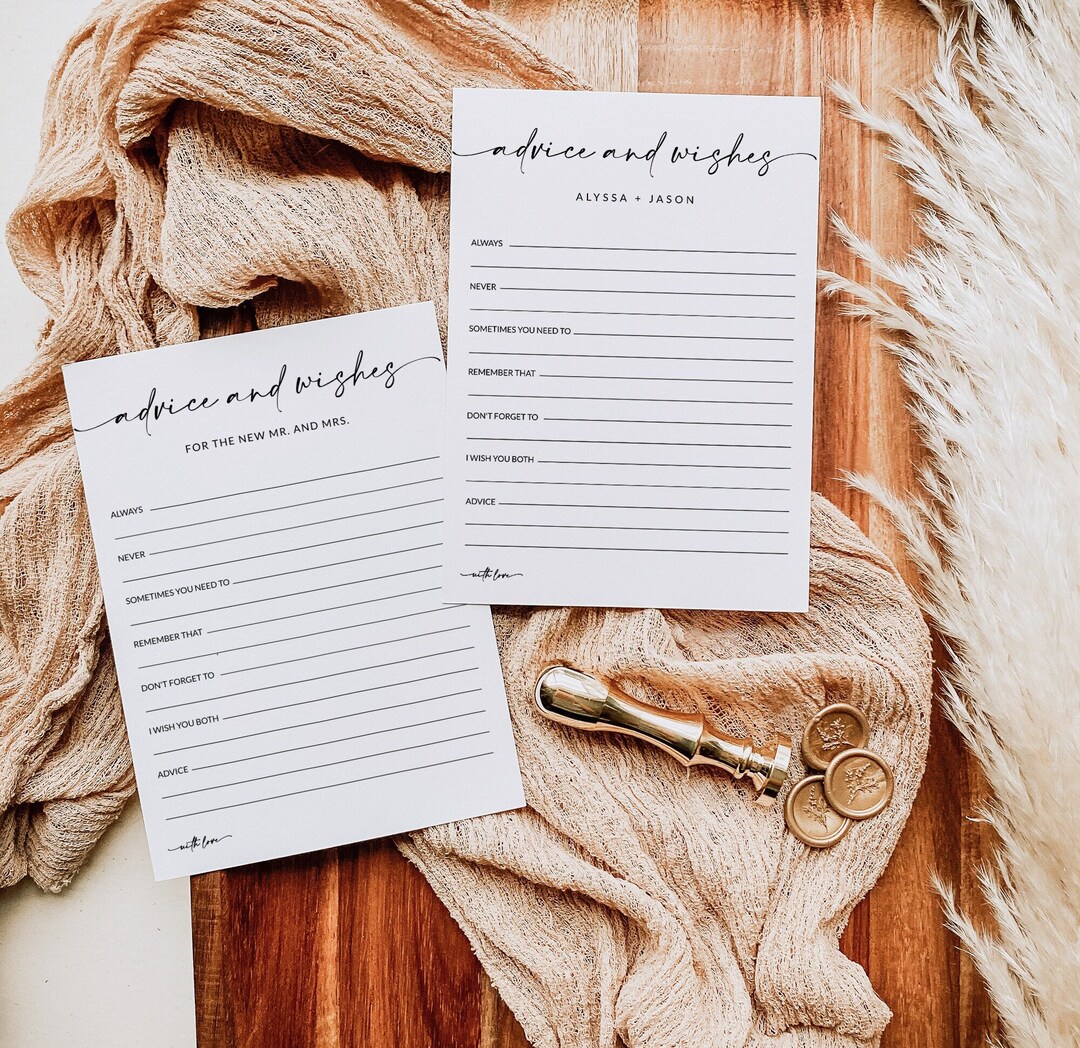 advice and wishes
FOR THE NEW MR. AND MRS.
ALWAYS
NEVER
SOMETIMES YOU NEED TO
REMEMBER THAT
DON'T FORGET TO
I WISH YOU BOTH
ADVICE
with love
advice and wishes
ALYSSA + JASON
ALWAYS
NEVER
SOMETIMES YOU NEED TO
REMEMBER THAT
DON'T FORGET TO
I WISH YOU BOTH
ADVICE
with love